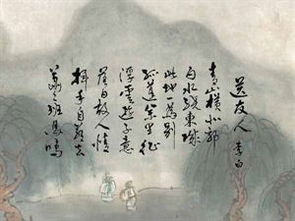 送友人 李白
青山橫北郭
白水繞東城
此地一為別
孤蓬萬里征
浮雲遊子意
落日故人情
揮手自茲去
蕭々班馬鳴